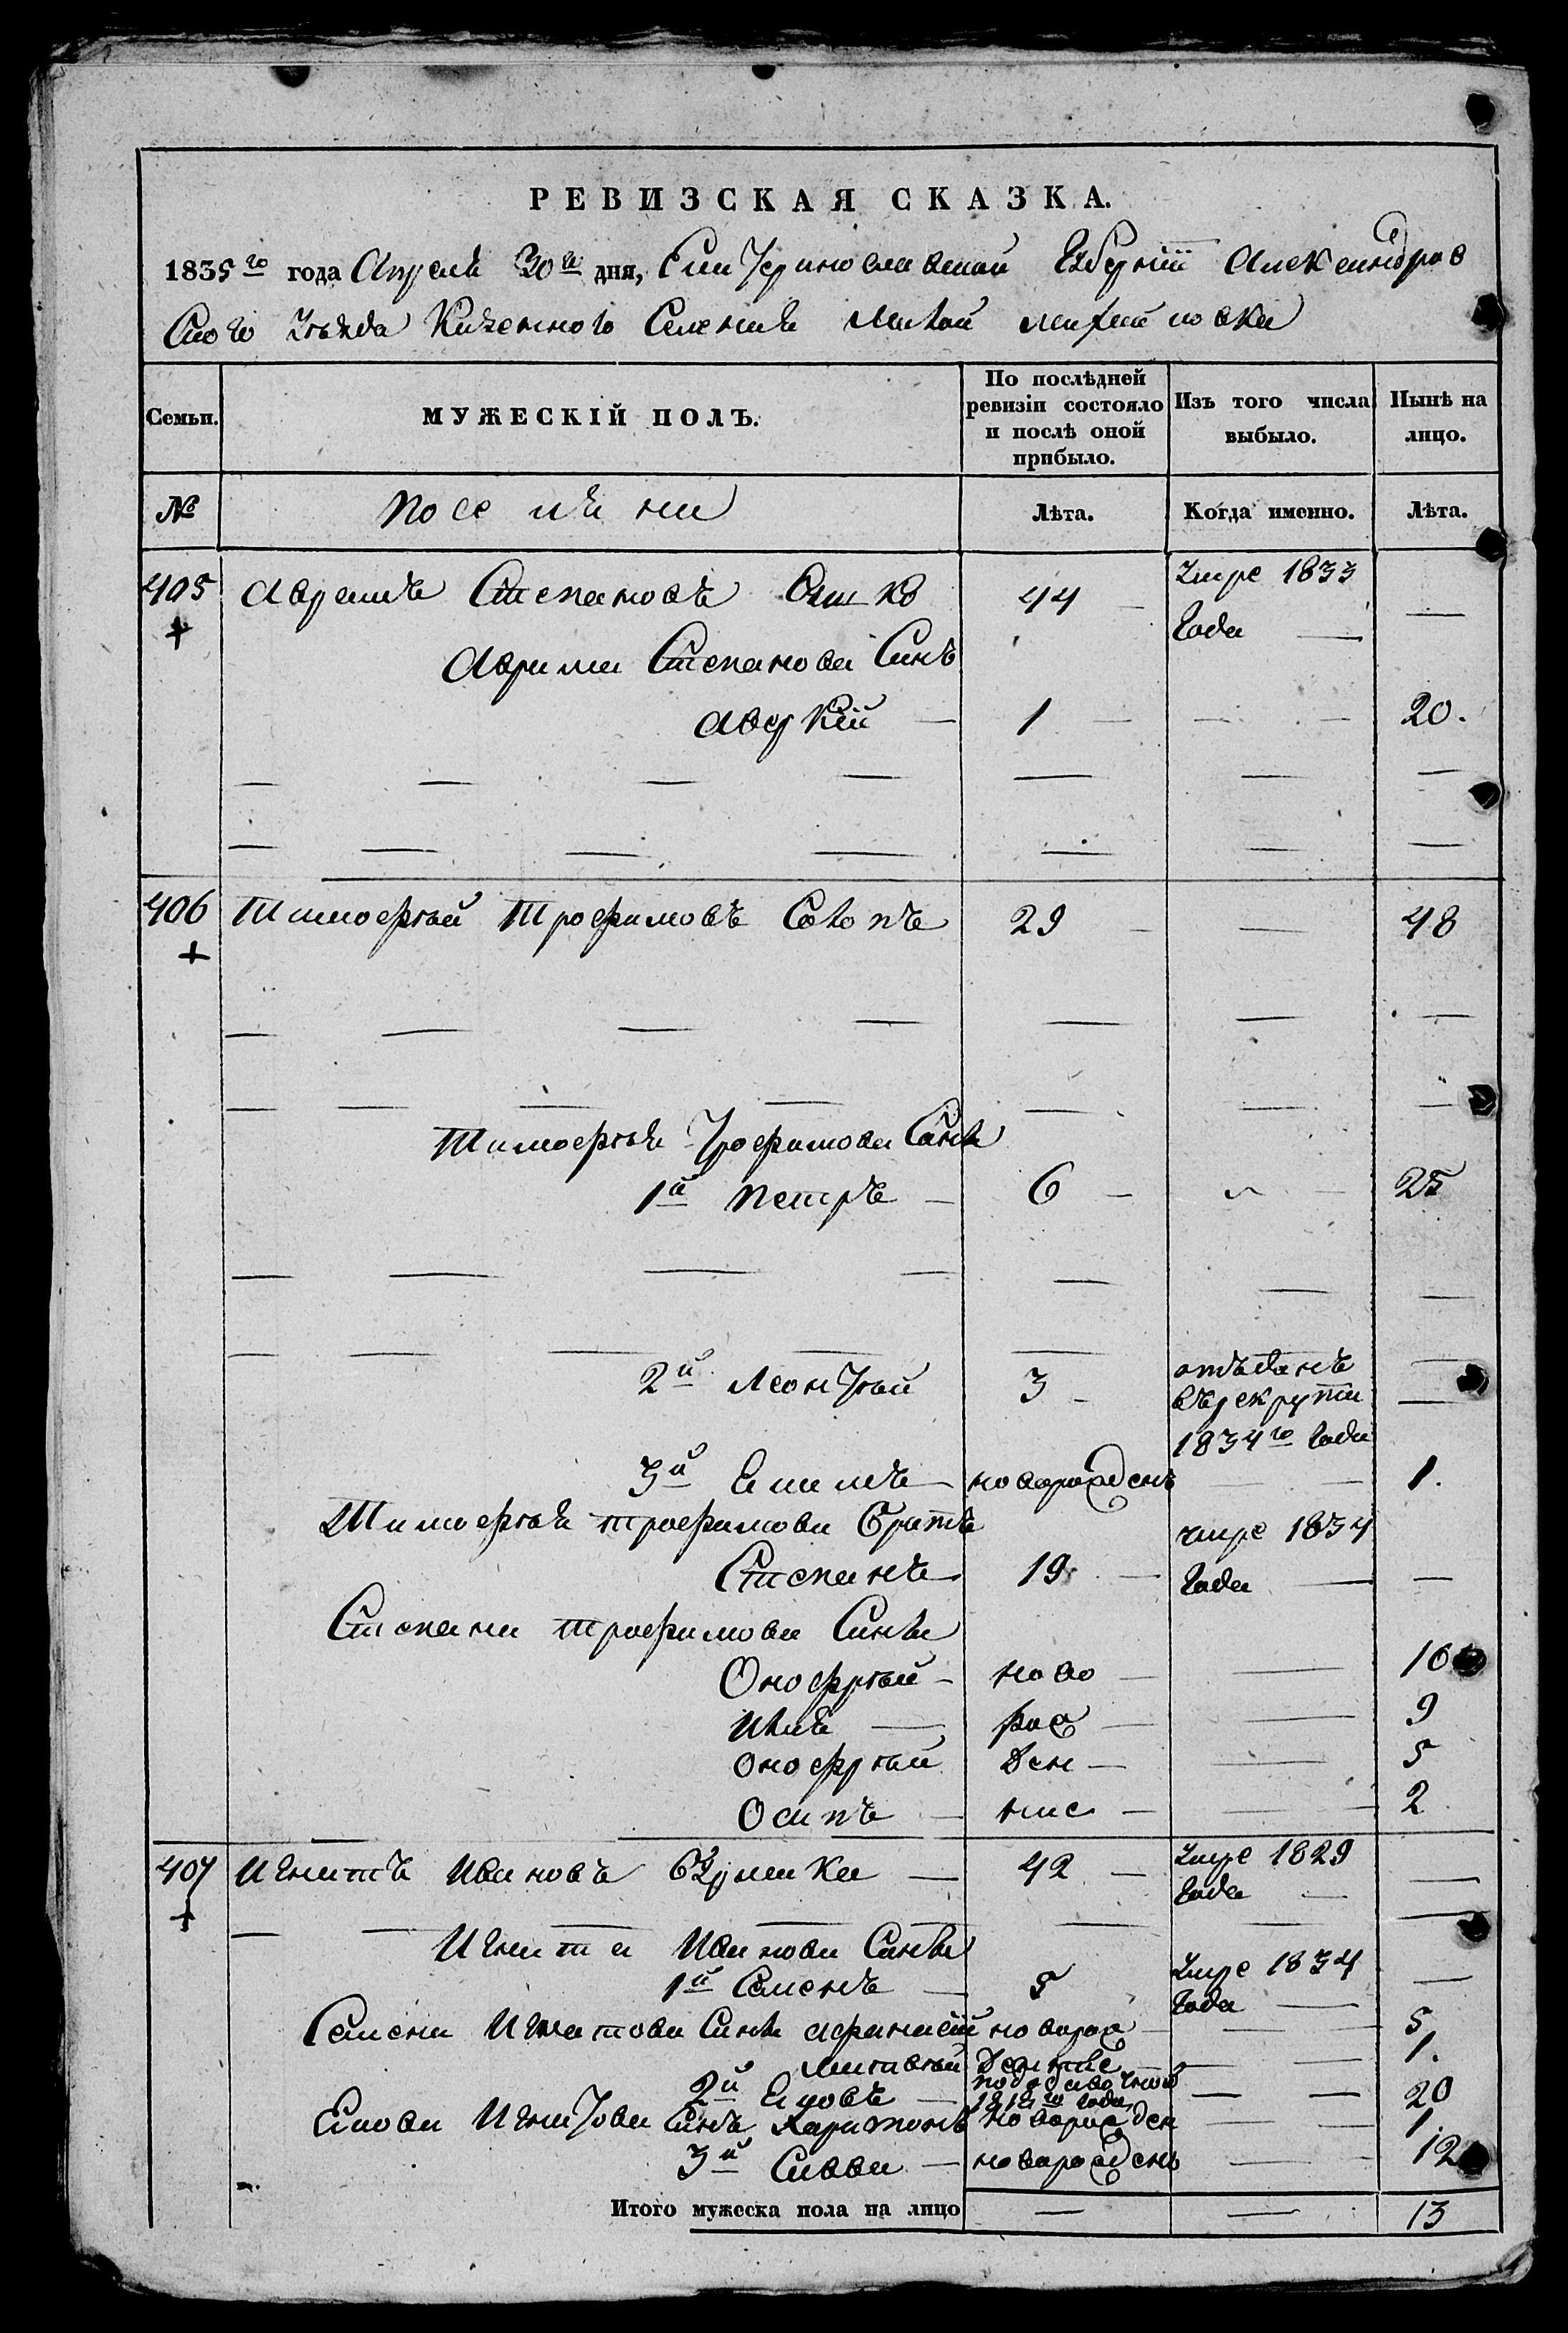 РЕВИЗСКАЯ СКАЗКА.
1835го года Апреля 30го дня, Екатеринославской Губерніи Александров
ского уезда Казенного Селения Малой михайловки
Семьи. МУЖЕСКІЙ ПОЛЪ. По послѣдней ревизіи состояло и послѣ оной прибыло. Изъ того числа выбыло. Нынѣ на лицо.
№ Поселяни Лѣта. Когда именно. Лѣта.
405 Аврамъ Степановъ 44 умре 1833 года —
Аврама Степанова Синъ
Аверкій — 1 — 20.
406 Тимофѣй Трофимовъ 29 — 48
Тимофѣя Трофимова Сины
1й Петръ — 6 — 25
2й Леонтѣй 3 — отъданъ въ рекруты 1834го года —
3й — новорожденъ — 1.
Тимофѣя трофимова Братъ
Степанъ 19 — умре 1834 года —
Степана трофимова Сины
Онофрѣй — ново — 16
Илья — рож — 9
Онофрѣй ден — 5
Осипъ — ние — 2
407 Игнатъ Ивановъ — 42 — умре 1829 года —
Игната Иванова Сины
1й Семенъ — 5 умре 1834 года —
Семена Игнатова Сины афанасій новорож — 5
Матвѣй дение — 1.
2й — 20
Игнатова Синъ Харитонъ новорожден — 1.
3й Савва — новорожденъ — 12
Итого мужеска пола на лицо — — 13